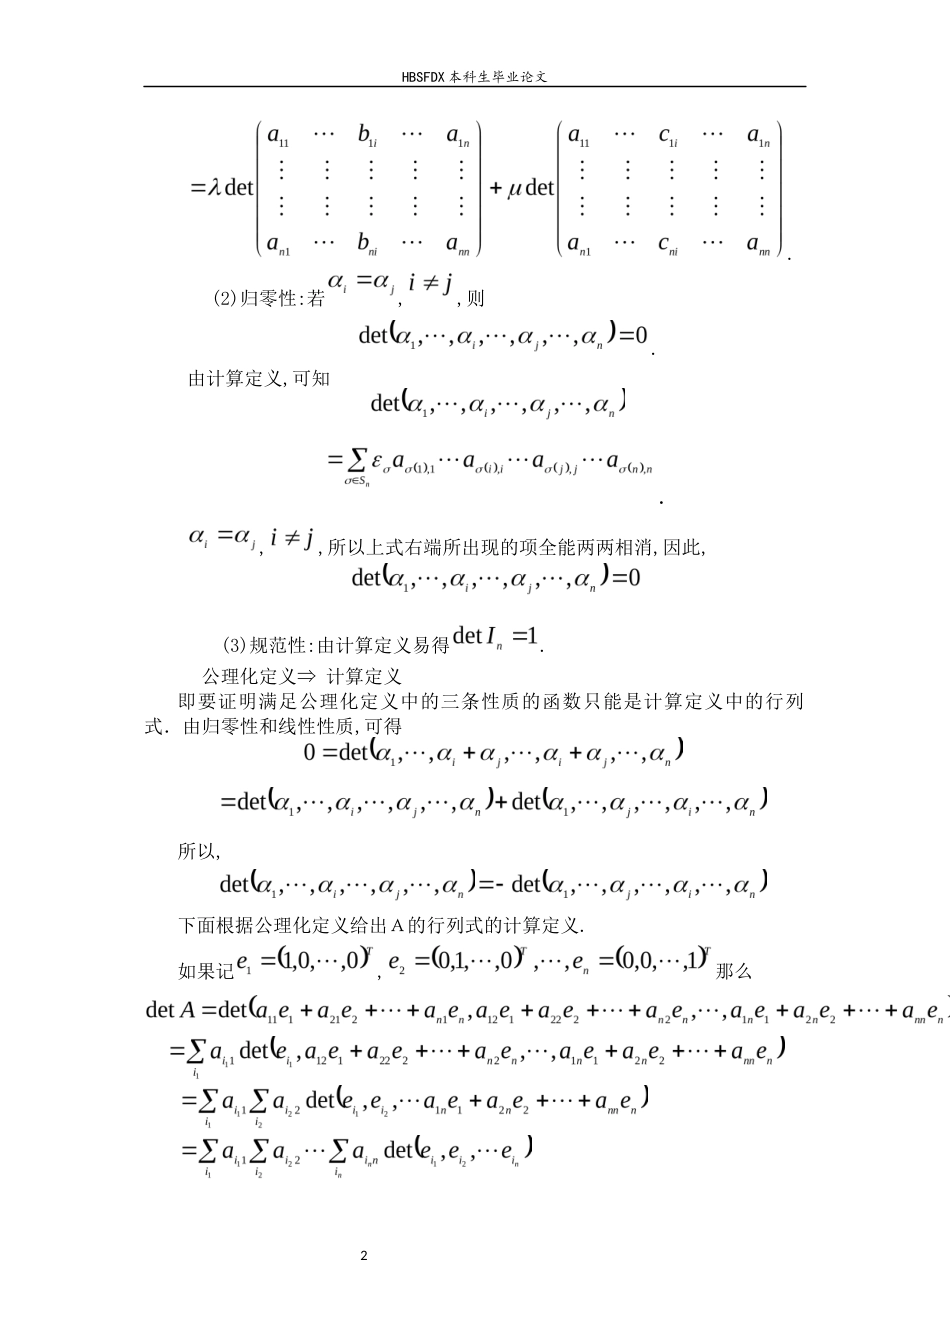 HBSFDX 本科生毕业论文
=λdet(a₁₁ ⋯ b₁ᵢ ⋯ a₁ₙ ⋮ ⋮ ⋮ ⋮ ⋮ ⋮ ⋮ ⋮ ⋮ ⋮ aₙ₁ ⋯ bₙᵢ ⋯ aₙₙ) + μdet(a₁₁ ⋯ c₁ᵢ ⋯ a₁ₙ ⋮ ⋮ ⋮ ⋮ ⋮ ⋮ ⋮ ⋮ ⋮ ⋮ aₙ₁ ⋯ cₙᵢ ⋯ aₙₙ).
(2)归零性:若 αᵢ=αⱼ, i ≠ j,则
det(α₁,⋯,αᵢ,⋯,αⱼ,⋯,αₙ)=0.
由计算定义,可知
det(α₁,⋯,αᵢ,⋯,αⱼ,⋯,αₙ)
=∑_{σ∈Sₙ} ε_σ a_{σ(1),1}⋯a_{σ(i),i}⋯a_{σ(j),j}⋯a_{σ(n),n}.
αᵢ=αⱼ, i ≠ j,所以上式右端所出现的项全能两两相消,因此,
det(α₁,⋯,αᵢ,⋯,αⱼ,⋯,αₙ)=0
(3)规范性:由计算定义易得 det Iₙ=1.
公理化定义⇒ 计算定义
即要证明满足公理化定义中的三条性质的函数只能是计算定义中的行列
式．由归零性和线性性质,可得
0=det(α₁,⋯,αᵢ+αⱼ,⋯,αᵢ+αⱼ,⋯,αₙ)
=det(α₁,⋯,αᵢ,⋯,αⱼ,⋯,αₙ)+det(α₁,⋯,αⱼ,⋯,αᵢ,⋯,αₙ)
所以,
det(α₁,⋯,αᵢ,⋯,αⱼ,⋯,αₙ)=-det(α₁,⋯,αⱼ,⋯,αᵢ,⋯,αₙ)
下面根据公理化定义给出Ａ的行列式的计算定义.
如果记 e₁=(1,0,⋯,0)ᵀ, e₂=(0,1,⋯,0)ᵀ,⋯,eₙ=(0,0,⋯,1)ᵀ 那么
det A=det(a₁₁e₁+a₂₁e₂+⋯+aₙ₁eₙ,a₁₂e₁+a₂₂e₂+⋯+aₙ₂eₙ,⋯,a₁ₙe₁+a₂ₙe₂+⋯+aₙₙeₙ)
=∑_{i₁} a_{i₁1}det(e_{i₁},a₁₂e₁+a₂₂e₂+⋯+aₙ₂eₙ,⋯,a₁ₙe₁+a₂ₙe₂+⋯+aₙₙeₙ)
=∑_{i₁} a_{i₁1}∑_{i₂} a_{i₂2}det(e_{i₁},e_{i₂},⋯,a₁ₙe₁+a₂ₙe₂+⋯+aₙₙeₙ)
=∑_{i₁} a_{i₁1}∑_{i₂} a_{i₂2}⋯∑_{iₙ} a_{iₙn}det(e_{i₁},e_{i₂},⋯e_{iₙ})
2